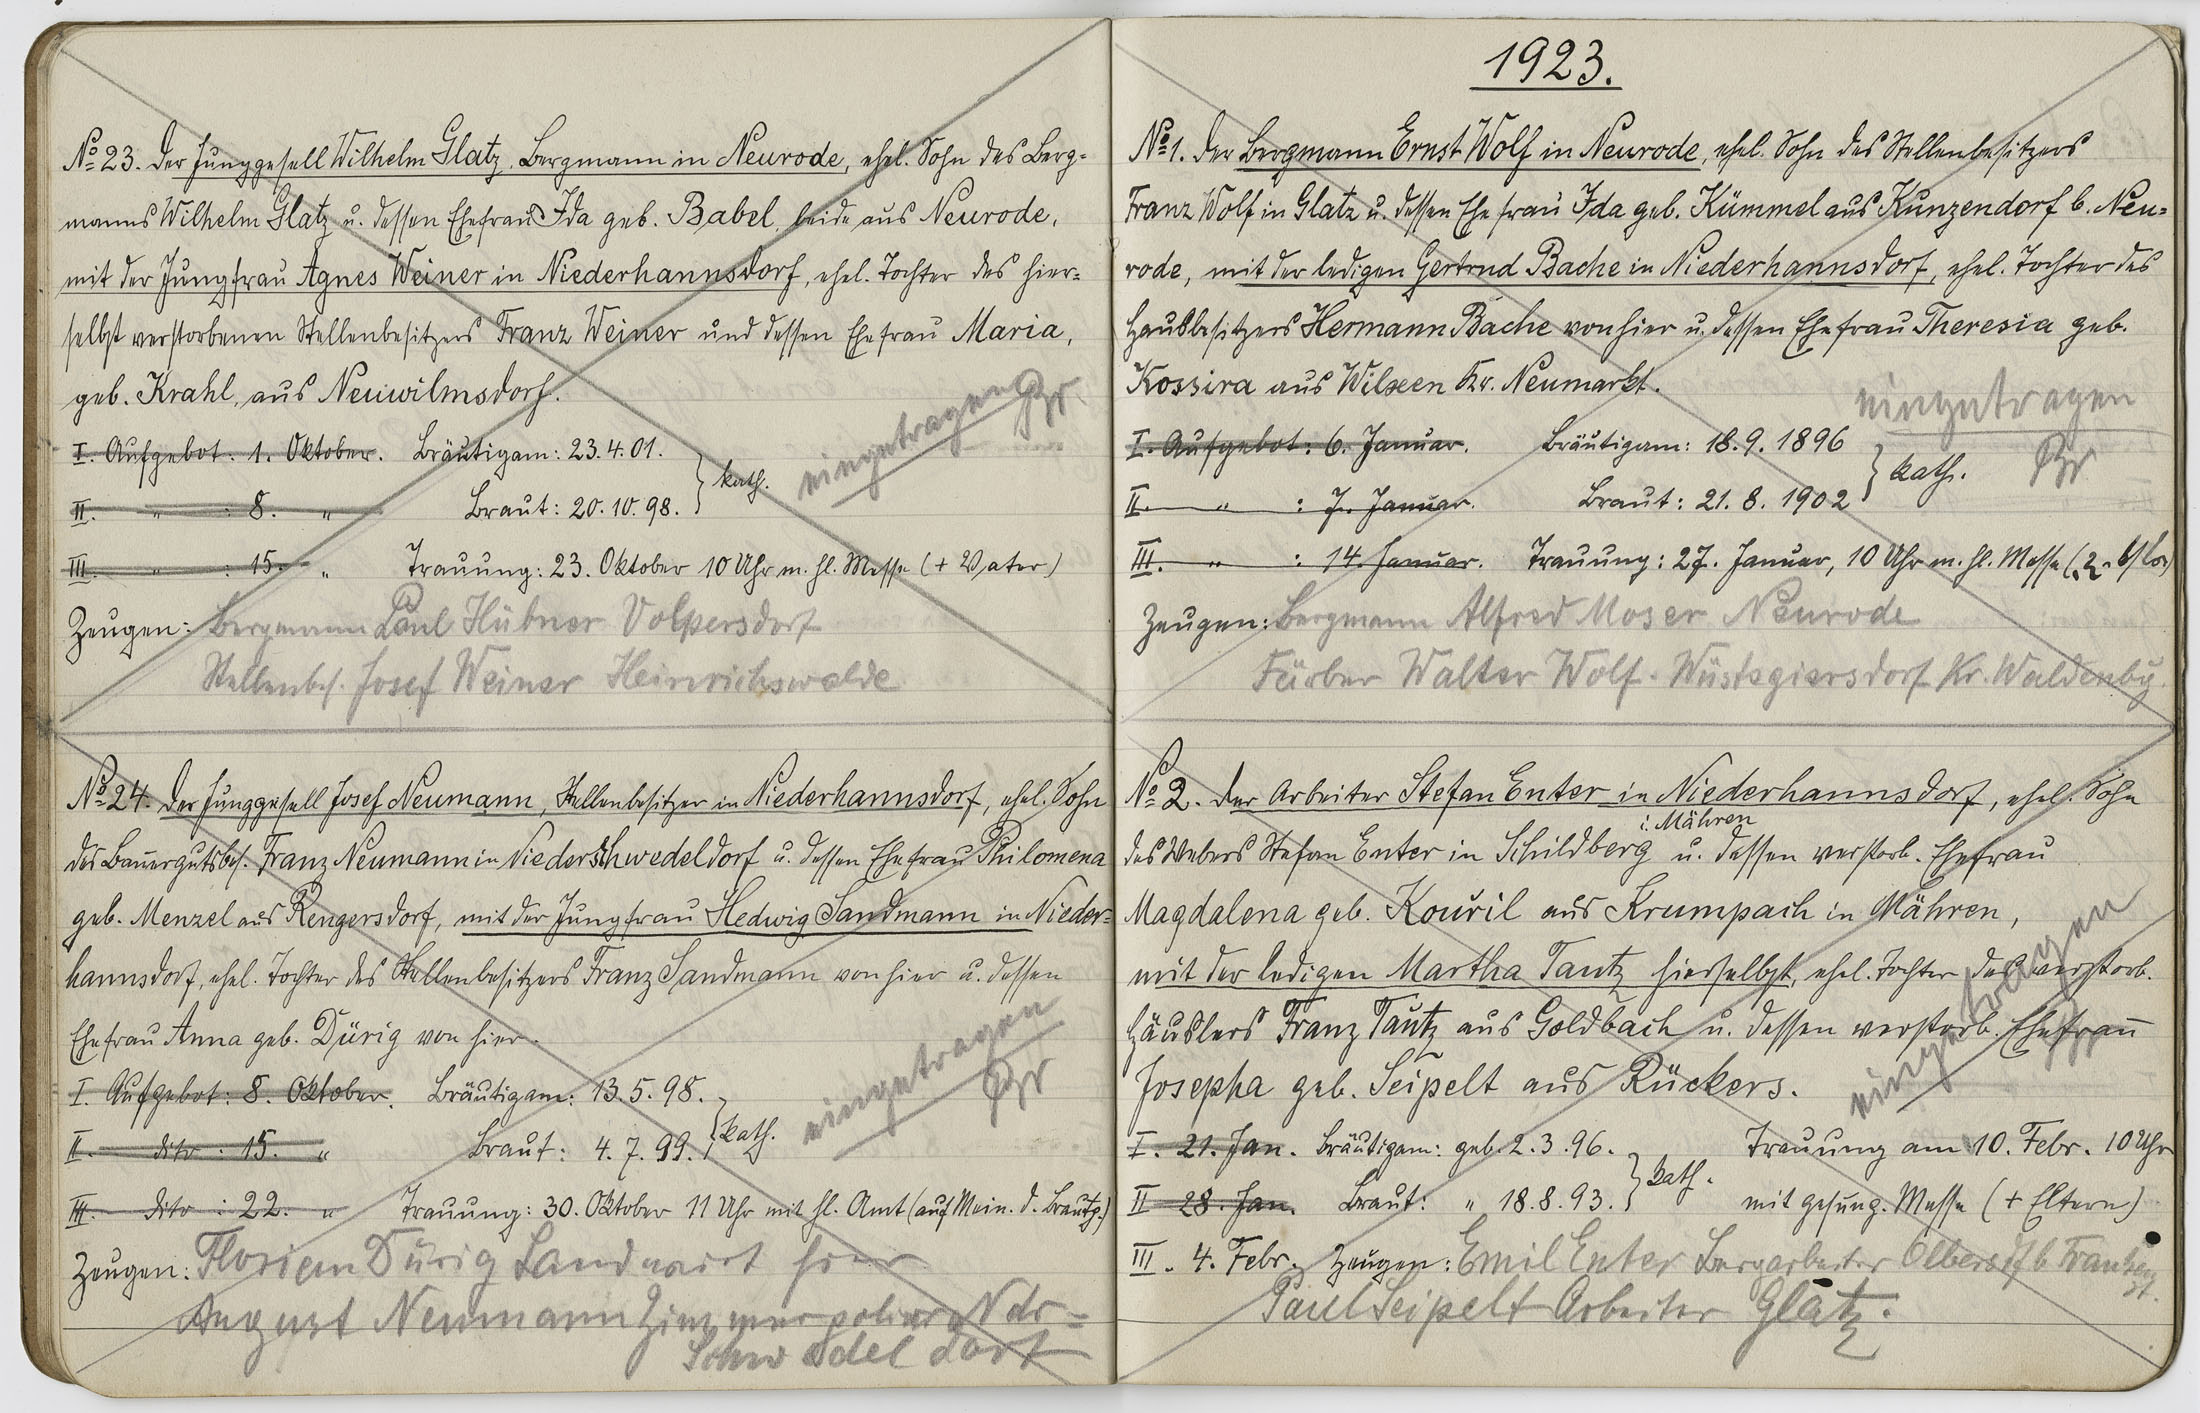 No 23. Der Junggesell Wilhelm Glatz, Bergmann in Neurode, ehel. Sohn des Berg-
manns Wilhelm Glatz u. dessen Ehefrau Ida geb. Babel, beide aus Neurode,
mit der Jungfrau Agnes Weiner in Niederhannsdorf, ehel. Tochter des hier-
selbst verstorbenen Stellenbesitzers Franz Weiner und dessen Ehefrau Maria,
geb. Krahl, aus Neuwilmsdorf.
eingetragen Br
I. Aufgebot: 1. Oktober. Bräutigam: 23.4.01.
II. " : 8. " Braut: 20.10.98. } kath.
III. " : 15. " Trauung: 23. Oktober 10 Uhr m. hl. Messe (+ Vater)
Zeugen: Bergmann Paul Hübner Volpersdorf
Stellenbes. Josef Weiner Heinrichswalde
No 24. Der Junggesell Josef Neumann, Stellenbesitzer in Niederhannsdorf, ehel. Sohn
des Bauergutsbes. Franz Neumann in Niederschwedeldorf u. dessen Ehefrau Philomena
geb. Menzel aus Rengersdorf, mit der Jungfrau Hedwig Sandmann in Nieder-
hannsdorf, ehel. Tochter des Stellenbesitzers Franz Sandmann von hier u. dessen
Ehefrau Anna geb. Dürig von hier.
eingetragen Br
I. Aufgebot: 8. Oktober. Bräutigam: 13.5.98.
II. dito : 15. " Braut: 4.7.99. } kath.
III. dito : 22. " Trauung: 30. Oktober 11 Uhr mit hl. Amt (auf Mein. d. Brautp.)
Zeugen: Florian Dürig Landwirt hier
August Neumann Zimmerpolier Ndr-
Schwedeldorf
1923.
No 1. Der Bergmann Ernst Wolf in Neurode, ehel. Sohn des Stellenbesitzers
Franz Wolf in Glatz u. dessen Ehefrau Ida geb. Kümmel aus Kunzendorf b. Neu-
rode, mit der ledigen Gertrud Bache in Niederhannsdorf, ehel. Tochter des
Hausbesitzers Hermann Bache von hier u. dessen Ehefrau Theresia geb.
Kossira aus Wilxen Kr. Neumarkt.
eingetragen
I. Aufgebot: 6. Januar. Bräutigam: 18.9.1896
II. " : 7. Januar. Braut: 21.8.1902 } kath. Br
III. " : 14. Januar. Trauung: 27. Januar, 10 Uhr m. hl. Messe
Zeugen: Bergmann Alfred Moser Neurode
Färber Walter Wolf. Wüstegiersdorf Kr. Waldenbg.
No 2. Der Arbeiter Stefan Enter in Niederhannsdorf, ehel. Sohn
i. Mähren
des Webers Stefan Enter in Schildberg u. dessen verstorb. Ehefrau
Magdalena geb. Kouřil aus Krumpach in Mähren,
mit der ledigen Martha Tautz hierselbst, ehel. Tochter des verstorb.
Häuslers Franz Tautz aus Goldbach u. dessen verstorb. Ehefrau
Josepha geb. Seipelt aus Rückers.
eingetragen Br
I. 21. Jan. Bräutigam: geb. 2.3.96. Trauung am 10. Febr. 10 Uhr
II 28. Jan. Braut: " 18.8.93. } kath. mit gesung. Messe (+ Eltern)
III. 4. Febr. Zeugen: Emil Enter Bergarbeiter Olbersdf b
Paul Seipelt Arbeiter Glatz.